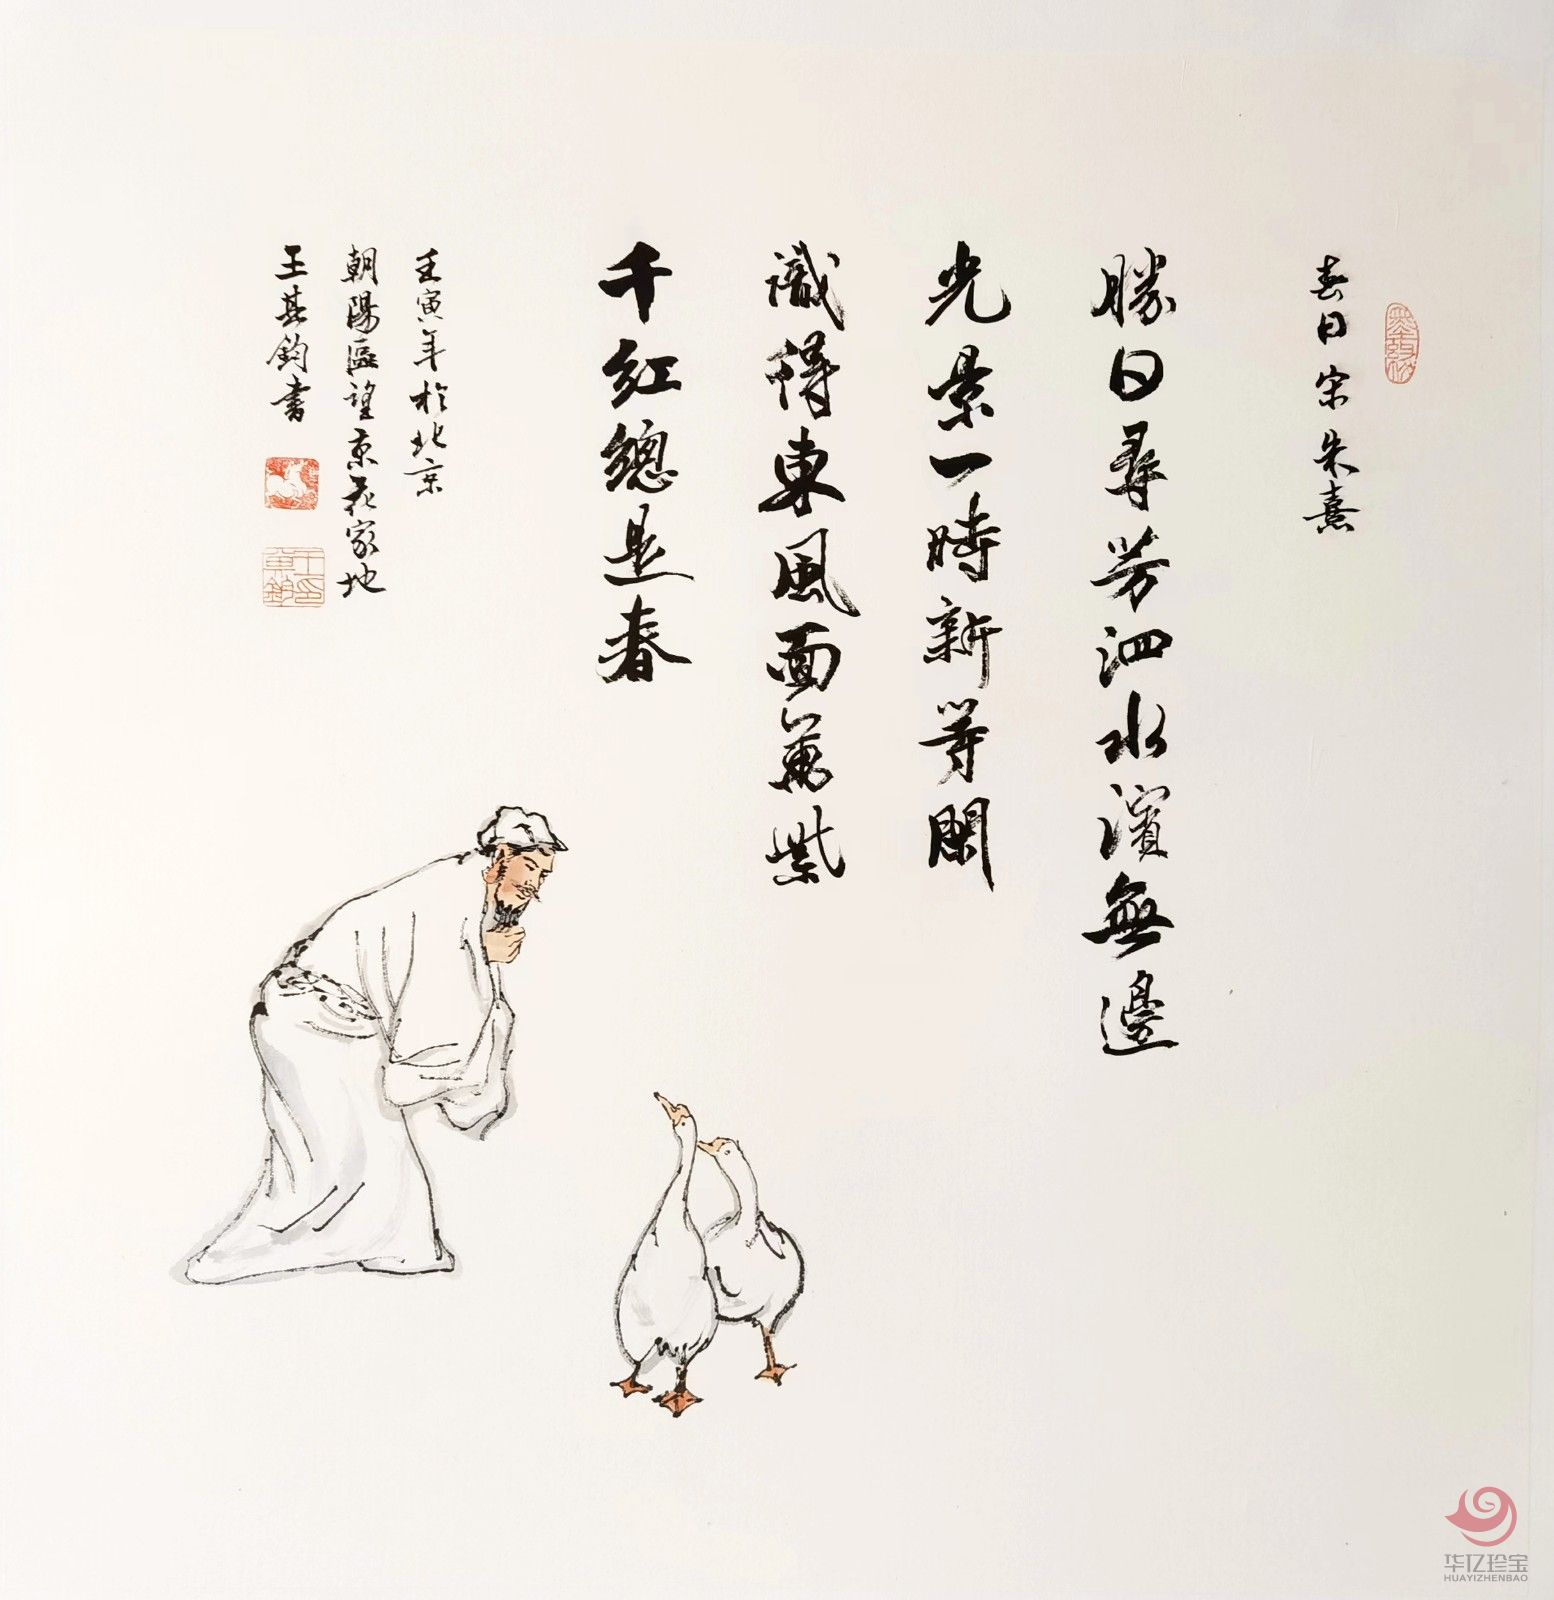 春日 宋 朱熹
勝日尋芳泗水濱無邊
光景一時新等閑
識得東風面萬紫
千紅總是春
壬寅年於北京
朝陽區望京花家地
王其鈞書
华亿珍宝
HUAYIZHENBAO